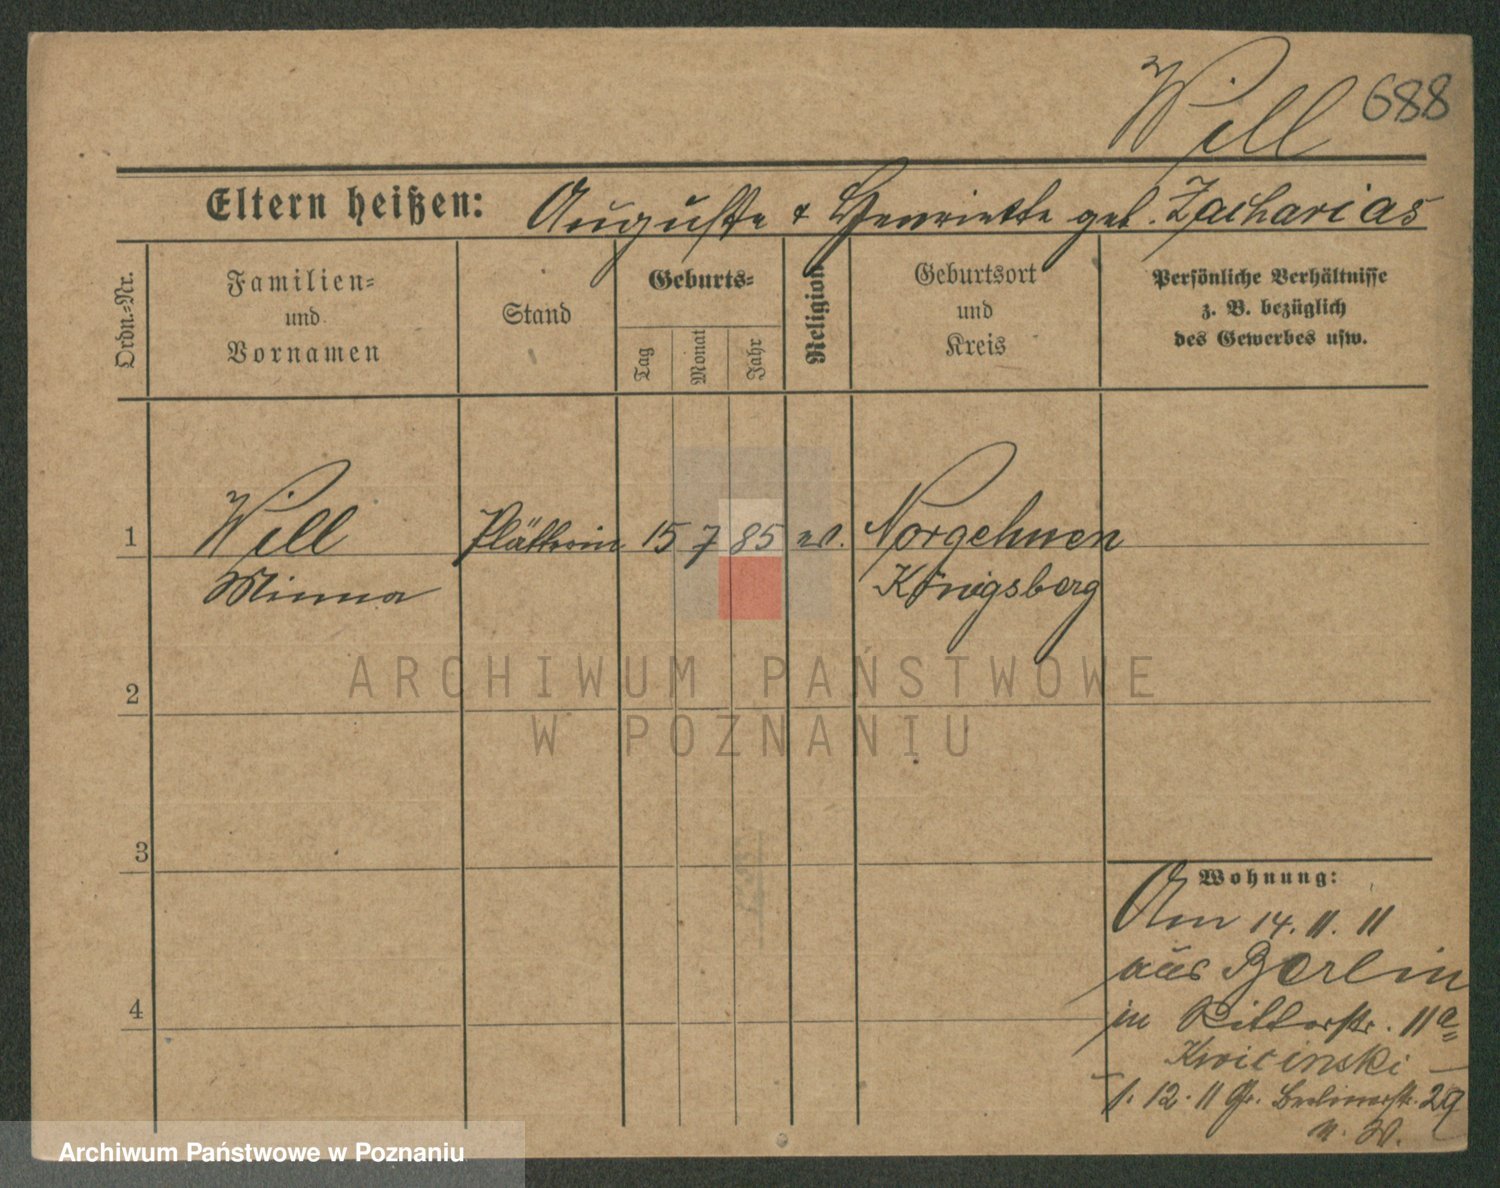 Will 688
Eltern heißen: Auguste & Henriette geb. Zacharias
Ordn.-Nr.
Familien-
und
Vornamen
Stand
Geburts-
Tag
Monat
Jahr
Religion
Geburtsort
und
Kreis
Persönliche Verhältnisse
z. B. bezüglich
des Gewerbes usw.
1 Will Plätterin 15 7 85 ev. Norgehnen
Minna Königsberg
2
3
4
Wohnung:
Am 14. 11. 11
aus Berlin
in Ritterstr. 11a
Kwicinski
1. 12. 11 Gr. Berlinerstr. 29
ARCHIWUM PAŃSTWOWE
W POZNANIU
Archiwum Państwowe w Poznaniu